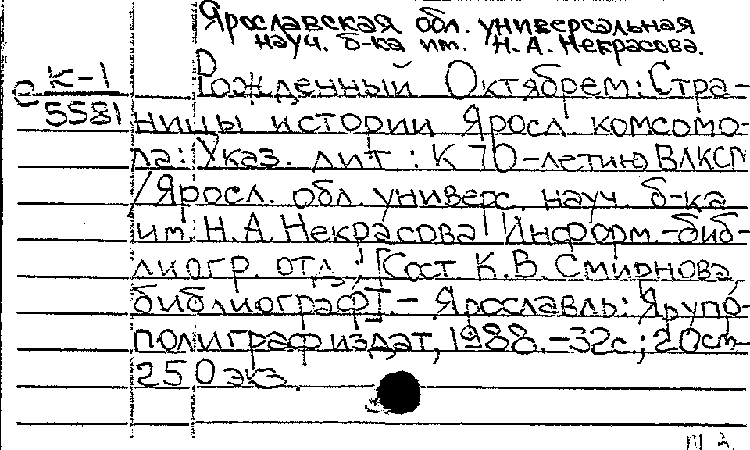 Ярославская обл. универсальная
науч. б-ка им. Н. А. Некрасова.
К-1
Рожденный Октябрем: Стра-
е 5581
ницы истории Яросл. комсомо-
ла: Указ. лит.: К 70-летию ВЛКСМ
/Яросл. обл. универс. науч. б-ка
им. Н. А. Некрасова. Информ.-биб-
лиогр. отд.; [Сост. К. В. Смирнова,
библиограф]. - Ярославль: Ярупо-
полиграфиздат, 1988. - 32с.; 20см-
250 экз.